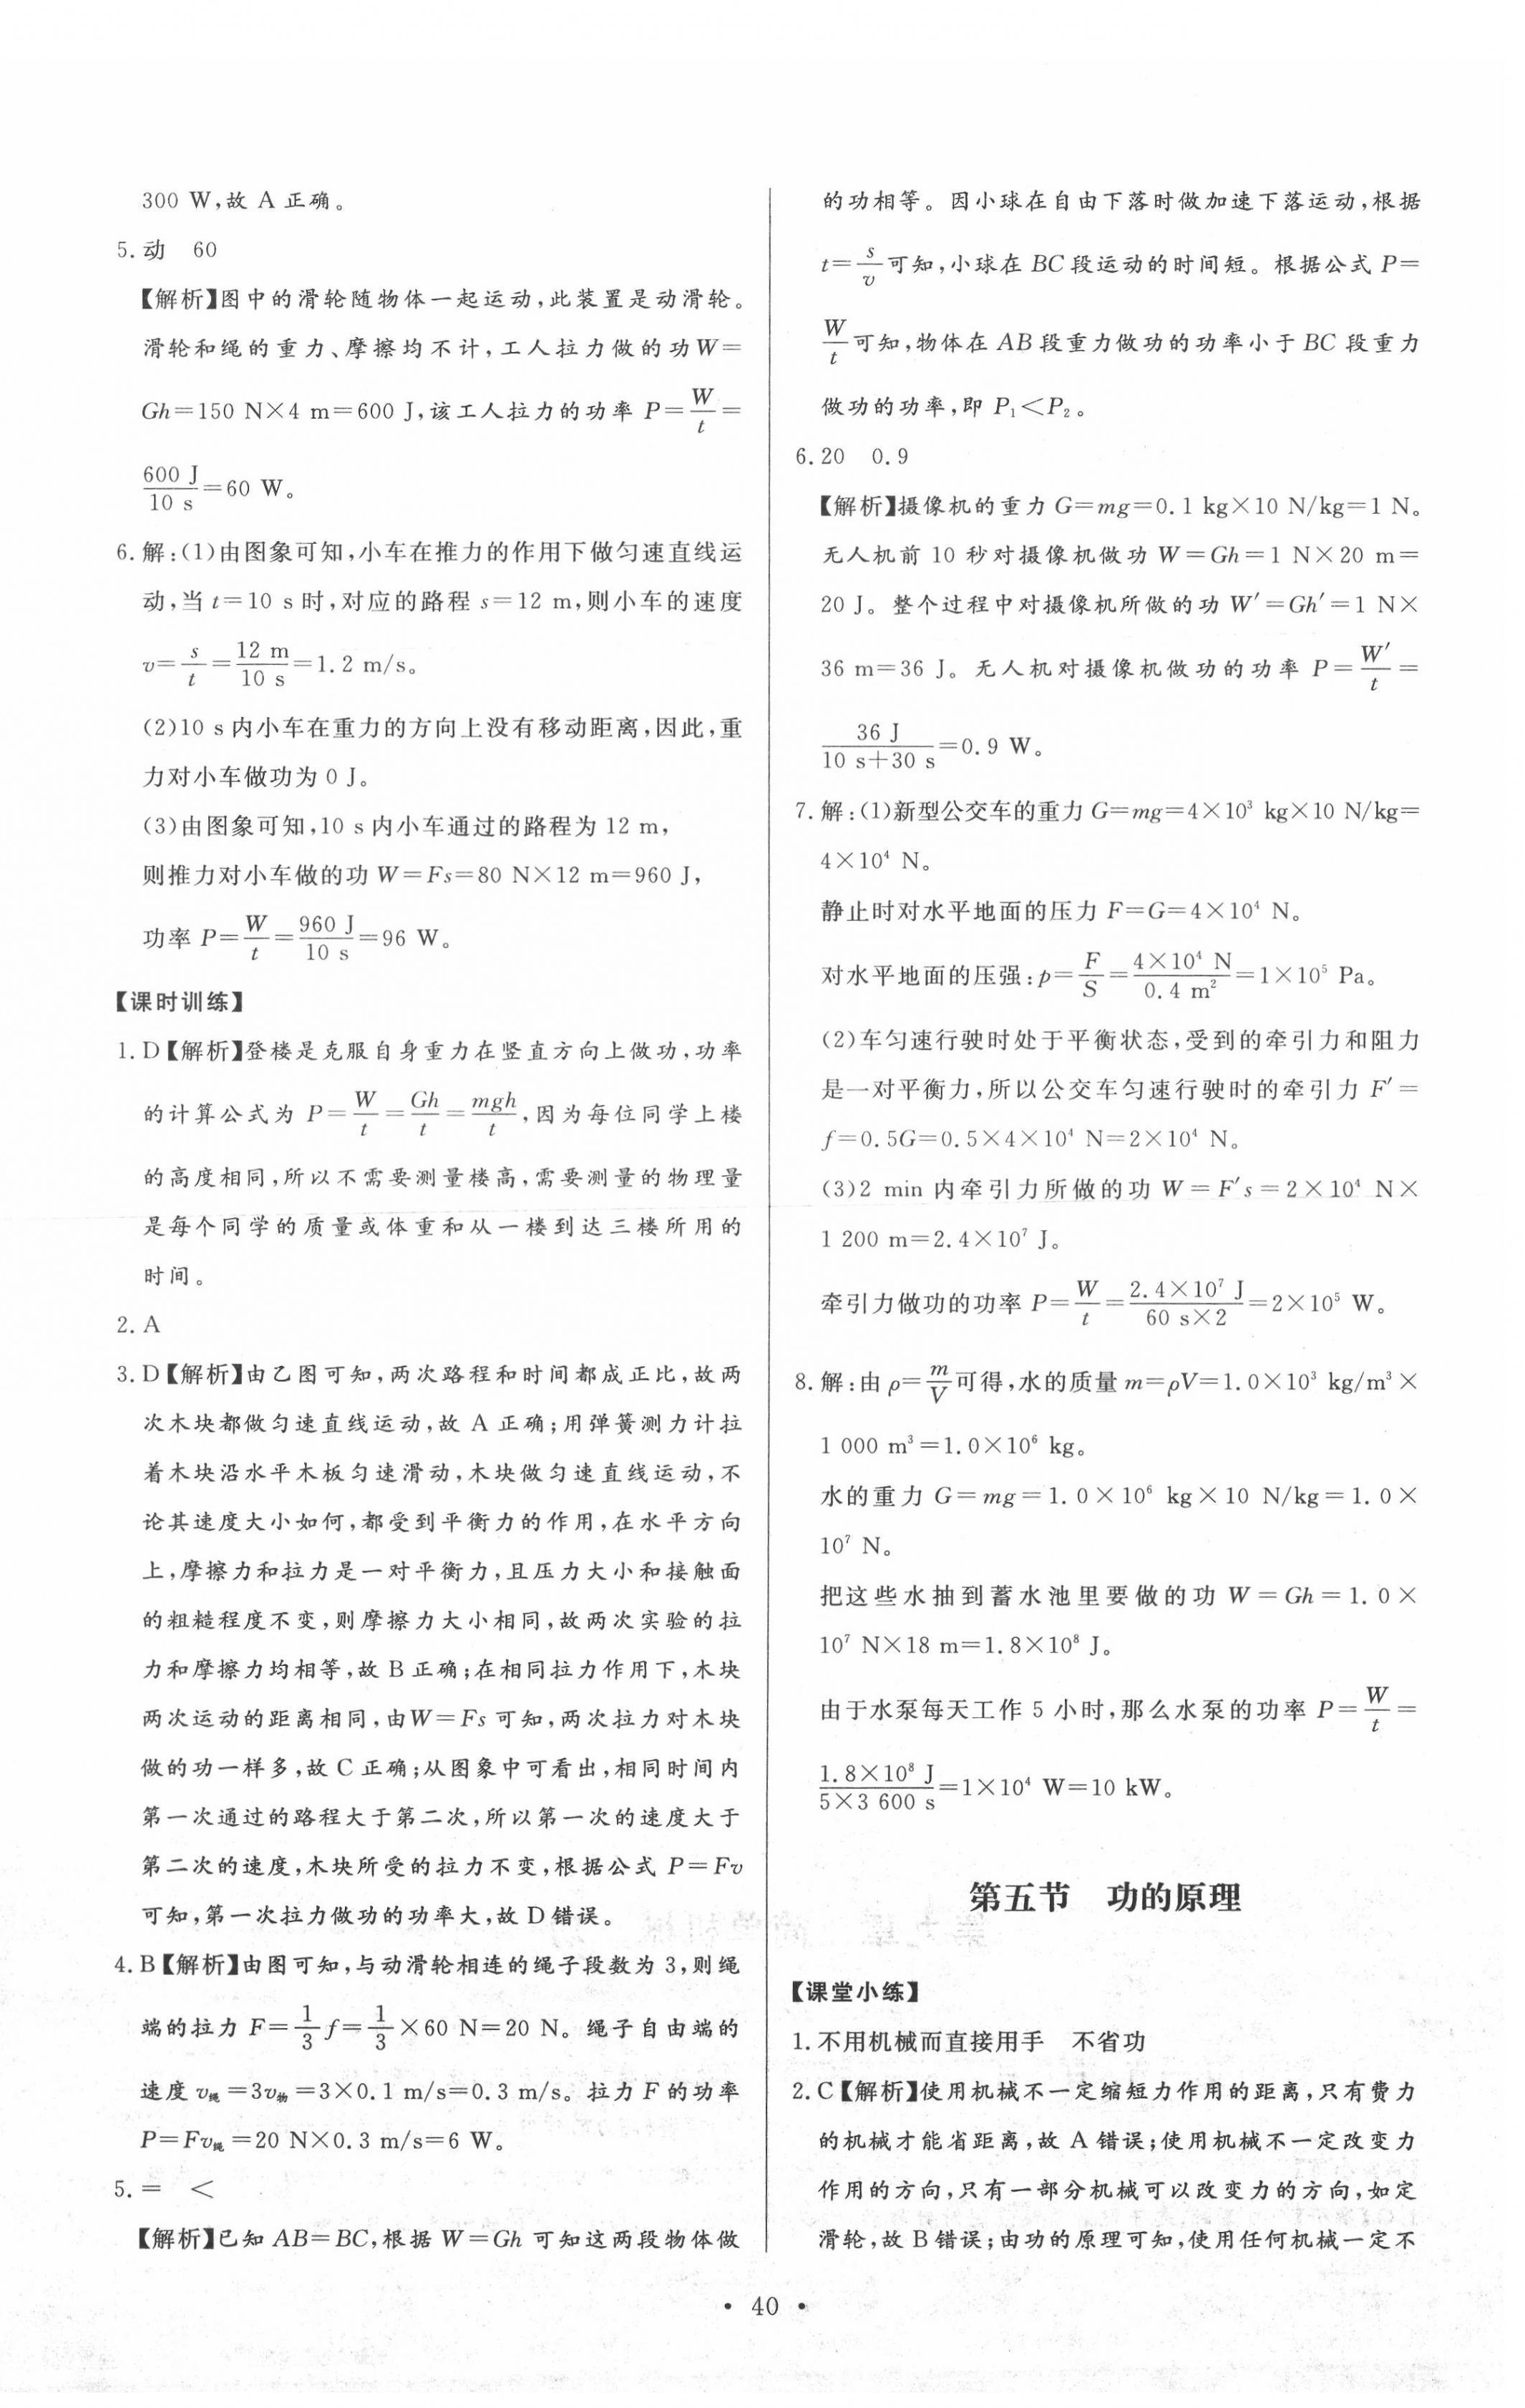 300 W,故 A 正确。
5. 动　60
【解析】图中的滑轮随物体一起运动,此装置是动滑轮。
滑轮和绳的重力、摩擦均不计,工人拉力做的功W=
Gh=150 N×4 m=600 J,该工人拉力的功率 P=W/t=
600 J/10 s=60 W。
6. 解:(1)由图象可知,小车在推力的作用下做匀速直线运
动,当 t=10 s 时,对应的路程 s=12 m,则小车的速度
v=s/t=12 m/10 s=1.2 m/s。
(2)10 s 内小车在重力的方向上没有移动距离,因此,重
力对小车做功为 0 J。
(3)由图象可知,10 s 内小车通过的路程为 12 m,
则推力对小车做的功 W=Fs=80 N×12 m=960 J,
功率 P=W/t=960 J/10 s=96 W。
【课时训练】
1. D【解析】登楼是克服自身重力在竖直方向上做功,功率
的计算公式为 P=W/t=Gh/t=mgh/t,因为每位同学上楼
的高度相同,所以不需要测量楼高,需要测量的物理量
是每个同学的质量或体重和从一楼到达三楼所用的
时间。
2. A
3. D【解析】由乙图可知,两次路程和时间都成正比,故两
次木块都做匀速直线运动,故 A 正确;用弹簧测力计拉
着木块沿水平木板匀速滑动,木块做匀速直线运动,不
论其速度大小如何,都受到平衡力的作用,在水平方向
上,摩擦力和拉力是一对平衡力,且压力大小和接触面
的粗糙程度不变,则摩擦力大小相同,故两次实验的拉
力和摩擦力均相等,故 B 正确;在相同拉力作用下,木块
两次运动的距离相同,由W=Fs 可知,两次拉力对木块
做的功一样多,故 C 正确;从图象中可看出,相同时间内
第一次通过的路程大于第二次,所以第一次的速度大于
第二次的速度,木块所受的拉力不变,根据公式 P=Fv
可知,第一次拉力做功的功率大,故 D 错误。
4. B【解析】由图可知,与动滑轮相连的绳子段数为 3,则绳
端的拉力 F=1/3 f=1/3×60 N=20 N。绳子自由端的
速度 v绳=3v物=3×0.1 m/s=0.3 m/s。拉力 F 的功率
P=Fv绳=20 N×0.3 m/s=6 W。
5. =　<
【解析】已知 AB=BC,根据 W=Gh 可知这两段物体做
的功相等。因小球在自由下落时做加速下落运动,根据
t=s/v可知,小球在 BC 段运动的时间短。根据公式 P=
W/t可知,物体在 AB 段重力做功的功率小于 BC 段重力
做功的功率,即 P₁<P₂。
6. 20　0.9
【解析】摄像机的重力 G=mg=0.1 kg×10 N/kg=1 N。
无人机前 10 秒对摄像机做功 W=Gh=1 N×20 m=
20 J。整个过程中对摄像机所做的功 W′=Gh′=1 N×
36 m=36 J。无人机对摄像机做功的功率 P=W′/t=
36 J/(10 s+30 s)=0.9 W。
7. 解:(1)新型公交车的重力 G=mg=4×10³ kg×10 N/kg=
4×10⁴ N。
静止时对水平地面的压力 F=G=4×10⁴ N。
对水平地面的压强:p=F/S=4×10⁴ N/0.4 m²=1×10⁵ Pa。
(2)车匀速行驶时处于平衡状态,受到的牵引力和阻力
是一对平衡力,所以公交车匀速行驶时的牵引力 F′=
f=0.5G=0.5×4×10⁴ N=2×10⁴ N。
(3)2 min 内牵引力所做的功 W=F′s=2×10⁴ N×
1 200 m=2.4×10⁷ J。
牵引力做功的功率 P=W/t=2.4×10⁷ J/(60 s×2)=2×10⁵ W。
8. 解:由 ρ=m/V可得,水的质量 m=ρV=1.0×10³ kg/m³×
1 000 m³=1.0×10⁶ kg。
水的重力 G=mg=1.0×10⁶ kg×10 N/kg=1.0×
10⁷ N。
把这些水抽到蓄水池里要做的功 W=Gh=1.0×
10⁷ N×18 m=1.8×10⁸ J。
由于水泵每天工作 5 小时,那么水泵的功率 P=W/t=
1.8×10⁸ J/(5×3 600 s)=1×10⁴ W=10 kW。
第五节　功的原理
【课堂小练】
1. 不用机械而直接用手　不省功
2. C【解析】使用机械不一定缩短力作用的距离,只有费力
的机械才能省距离,故 A 错误;使用机械不一定改变力
作用的方向,只有一部分机械可以改变力的方向,如定
滑轮,故 B 错误;由功的原理可知,使用任何机械一定不
• 40 •